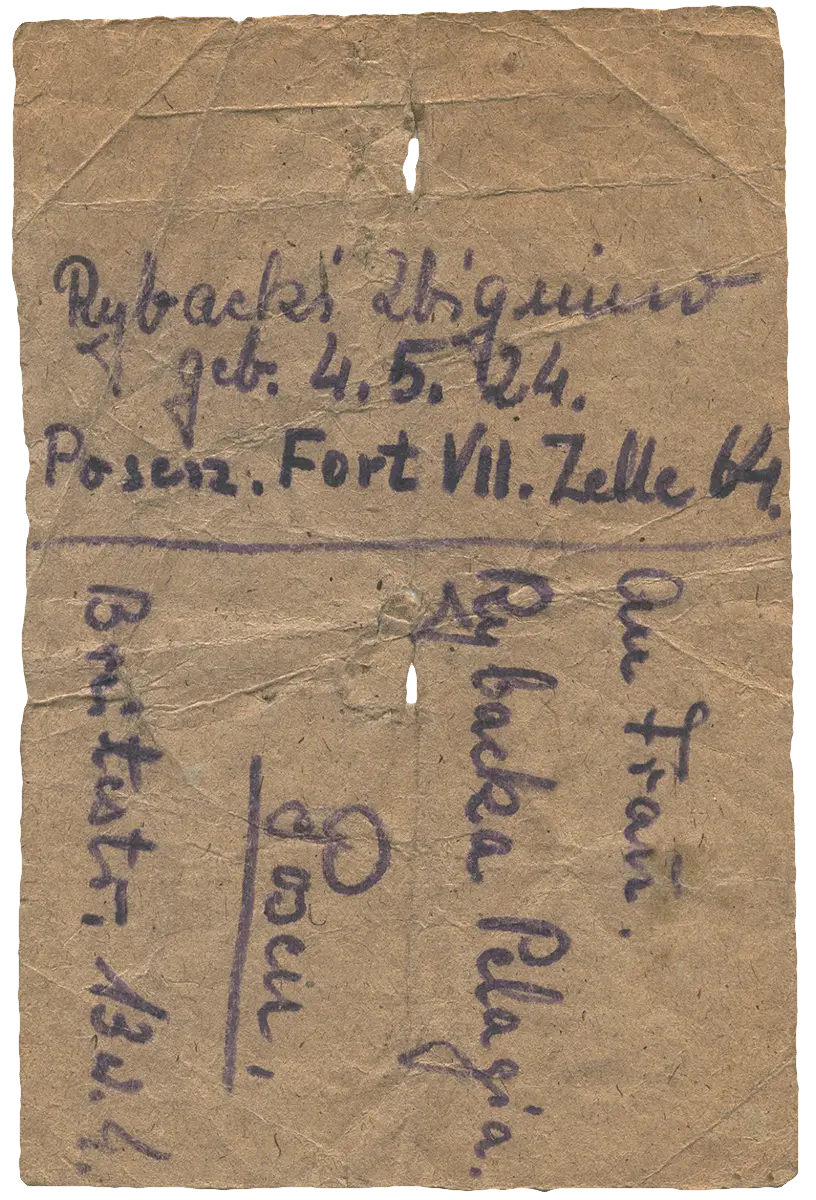 Rybacki Zbigniew
geb. 4. 5. 24.
Posen. Fort VII. Zelle 64.
An Frau.
Rybacka Pelagia.
Posen,
13 w. 4.